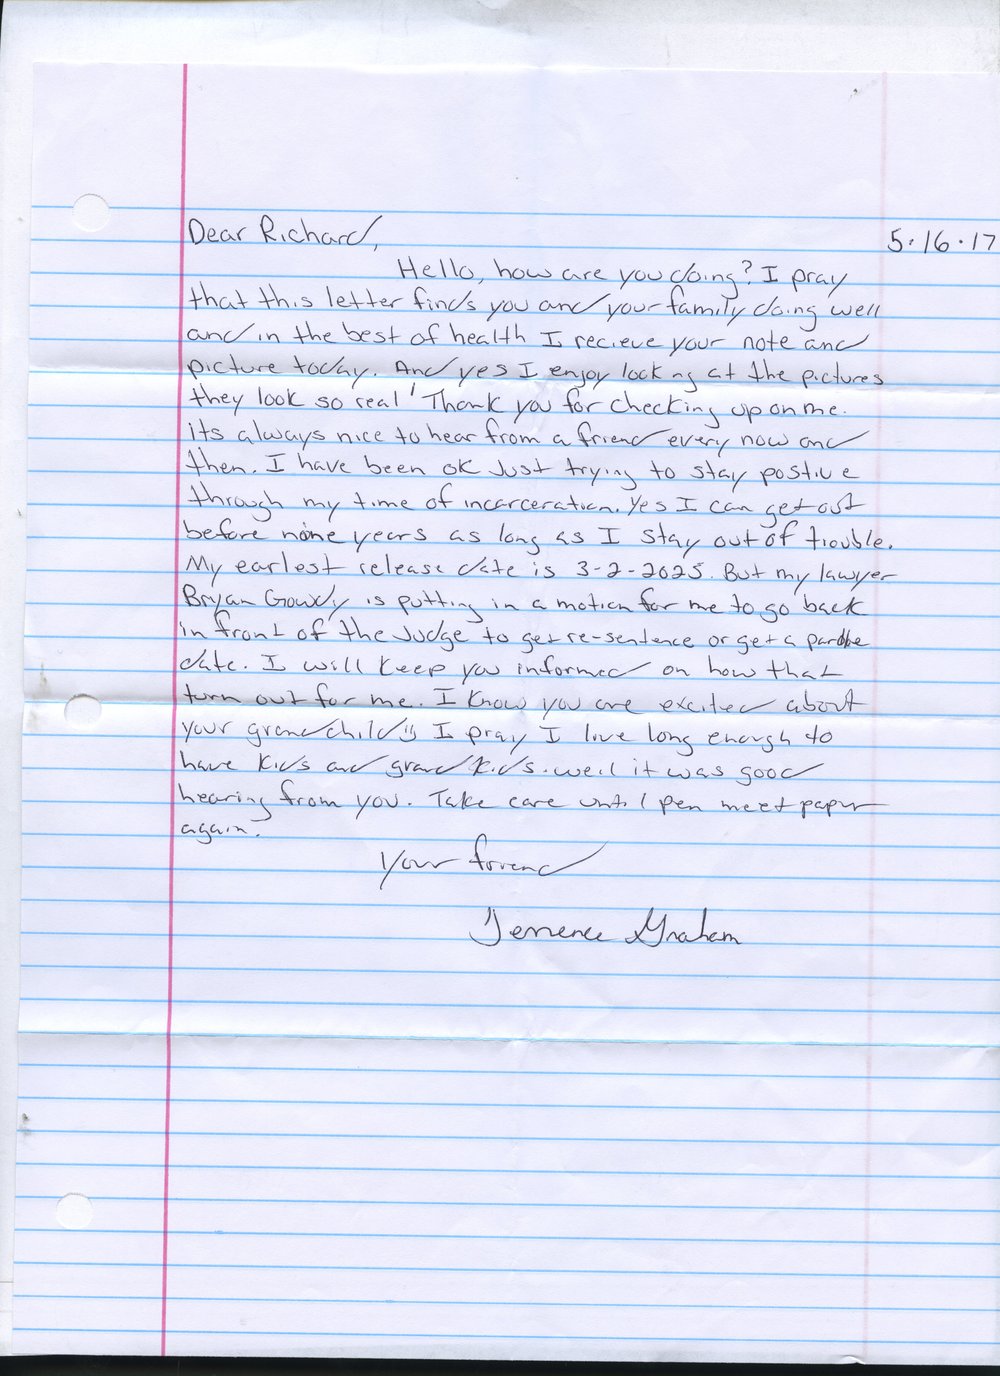 Dear Richard,
5.16.17
Hello, how are you doing? I pray
that this letter finds you and your family doing well
and in the best of health I recieve your note and
picture today. And yes I enjoy looking at the pictures
they look so real! Thank you for checking up on me.
its always nice to hear from a friend every now and
then. I have been ok Just trying to stay postive
through my time of incarceration. Yes I can get out
before nine years as long as I stay out of trouble.
My earlest release date is 3-2-2025. But my lawyer
Bryan Gowdy is putting in a motion for me to go back
in front of the Judge to get re-sentence or get a
date. I will keep you informed on how that
turn out for me. I know you are excited about
your grandchild I pray I live long enough to
have kids and grand kids. well it was good
hearing from you. Take care until pen meet paper
again.
Your friend
Terrence Graham